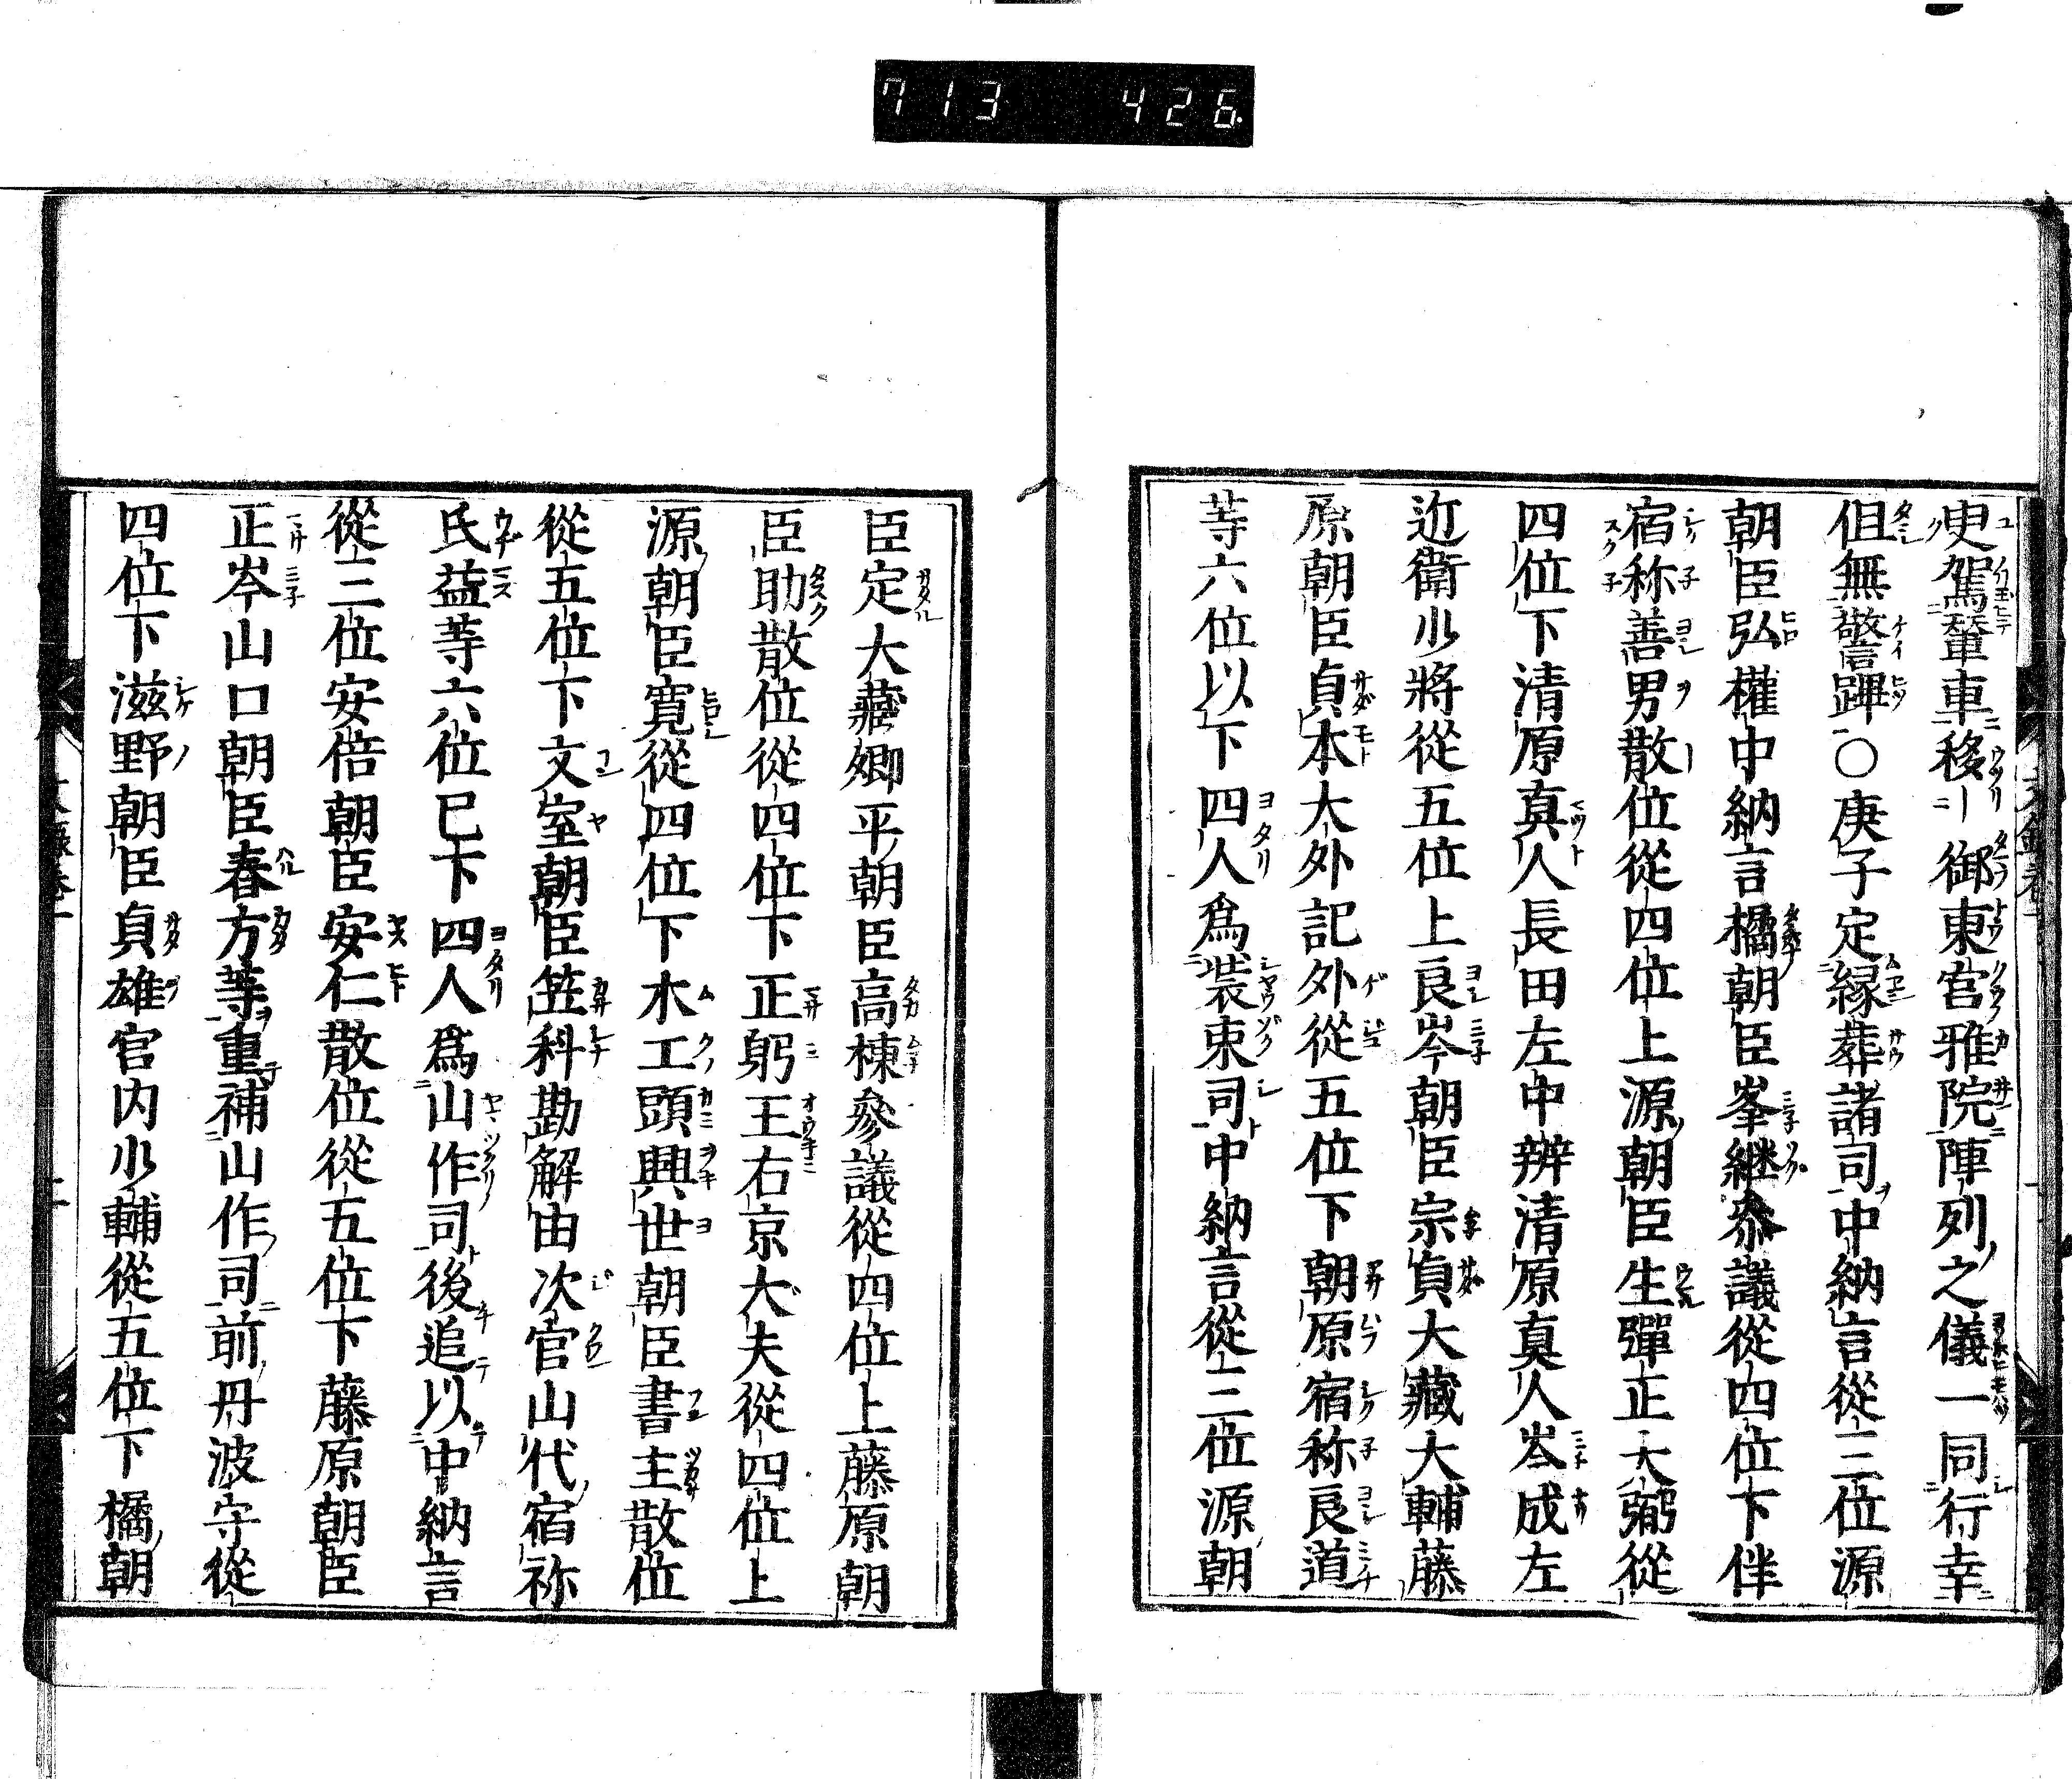 713 426
臾駕輦車移御東宮雅院陣列之儀一同行幸
但無警蹕〇庚子定縁葬諸司中納言從三位源
朝臣弘權中納言橘朝臣峯継叅議從四位下伴
宿祢善男散位從四位上源朝臣生彈正大弼從
四位下清原真人長田左中辨清原真人岑成左
近衛少將從五位上良岑朝臣宗貞大藏大輔藤
原朝臣貞本大外記外從五位下朝原宿祢良道
等六位以下四人爲装束司中納言從三位源朝
臣定大藏卿平朝臣高棟參議從四位上藤原朝
臣助散位從四位下正躬王右京大夫從四位上
源朝臣寛從四位下木工頭興世朝臣書主散位
從五位下文室朝臣笠科勘解由次官山代宿祢
氏益等六位已下四人爲山作司後追以中納言
從三位安倍朝臣安仁散位從五位下藤原朝臣
正岑山口朝臣春方等重補山作司前丹波守從
四位下滋野朝臣貞雄宮内少輔從五位下橘朝